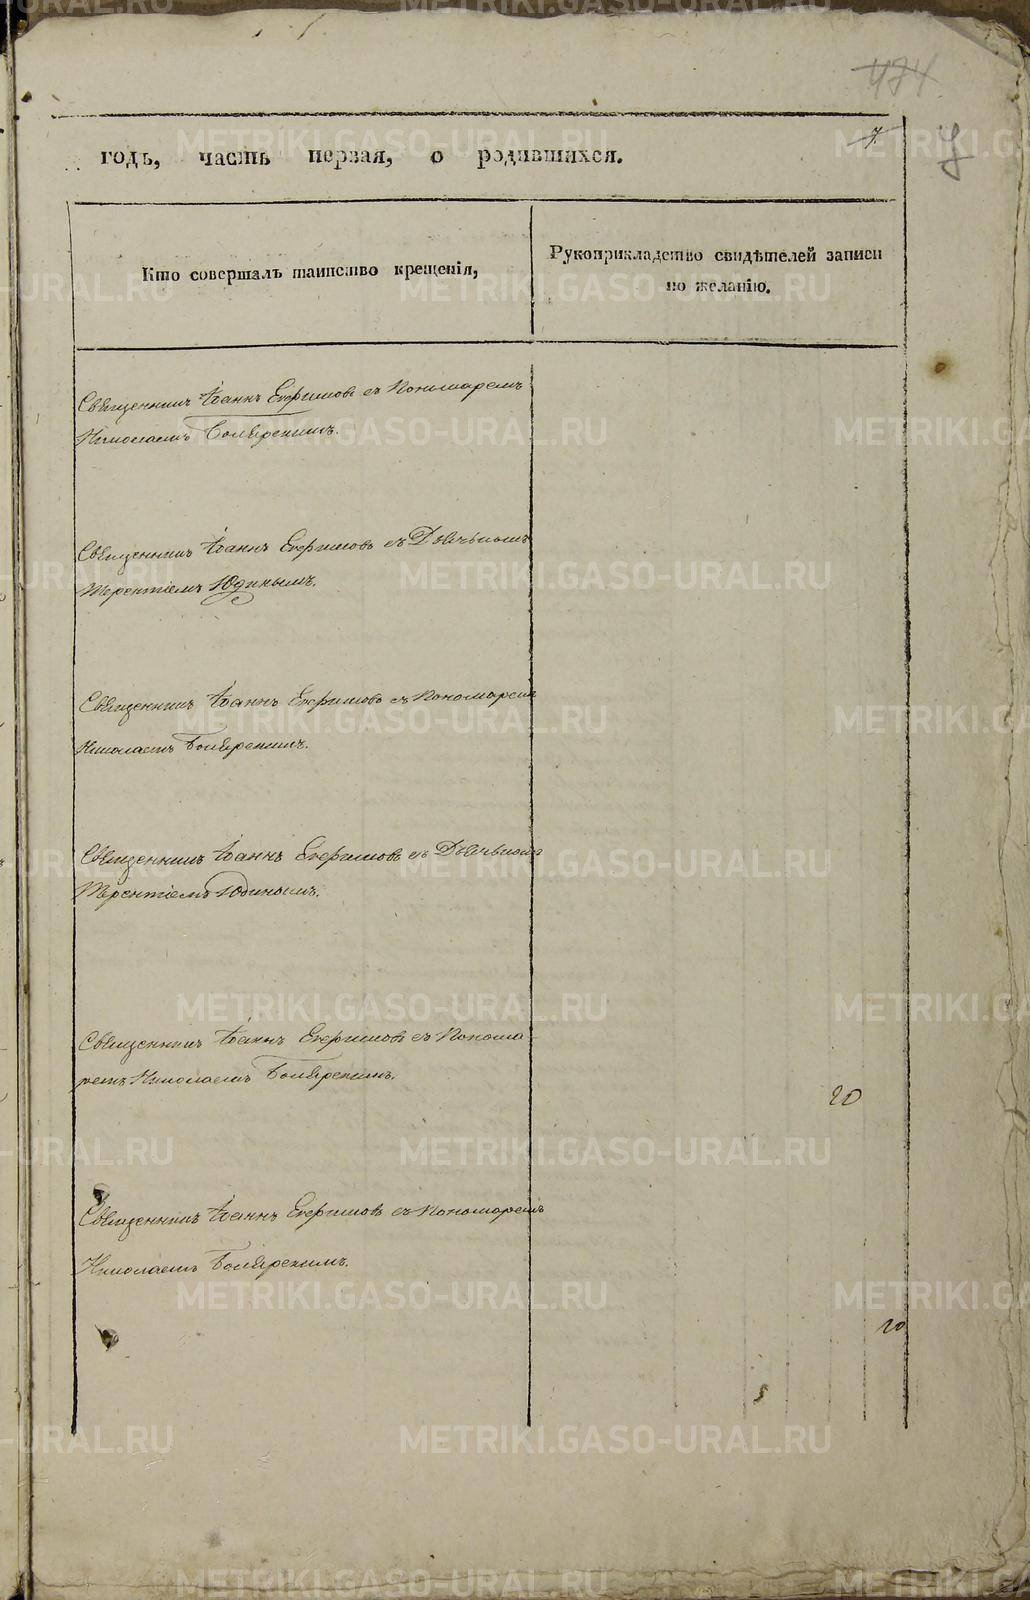 474
7.
7
годъ, часть первая, о родившихся.
Кто совершалъ таинство крещенія,
Рукоприкладство свидѣтелей записи
по желанію.
Священникъ Іоаннъ Ефримовъ съ Пономаремъ
Николаемъ
Священникъ Іоаннъ Ефримовъ съ Дьячькомъ
Терентіемъ Юдинымъ.
Священникъ Іоаннъ Ефримовъ съ Пономаремъ
Николаемъ
Священникъ Іоаннъ Ефримовъ съ Дьячькомъ
Терентіемъ Юдинымъ.
Священникъ Іоаннъ Ефримовъ съ Понома-
ремъ Николаемъ
20
Священникъ Іоаннъ Ефримовъ съ Пономаремъ
Николаемъ
20
METRIKI.GASO-URAL.RU